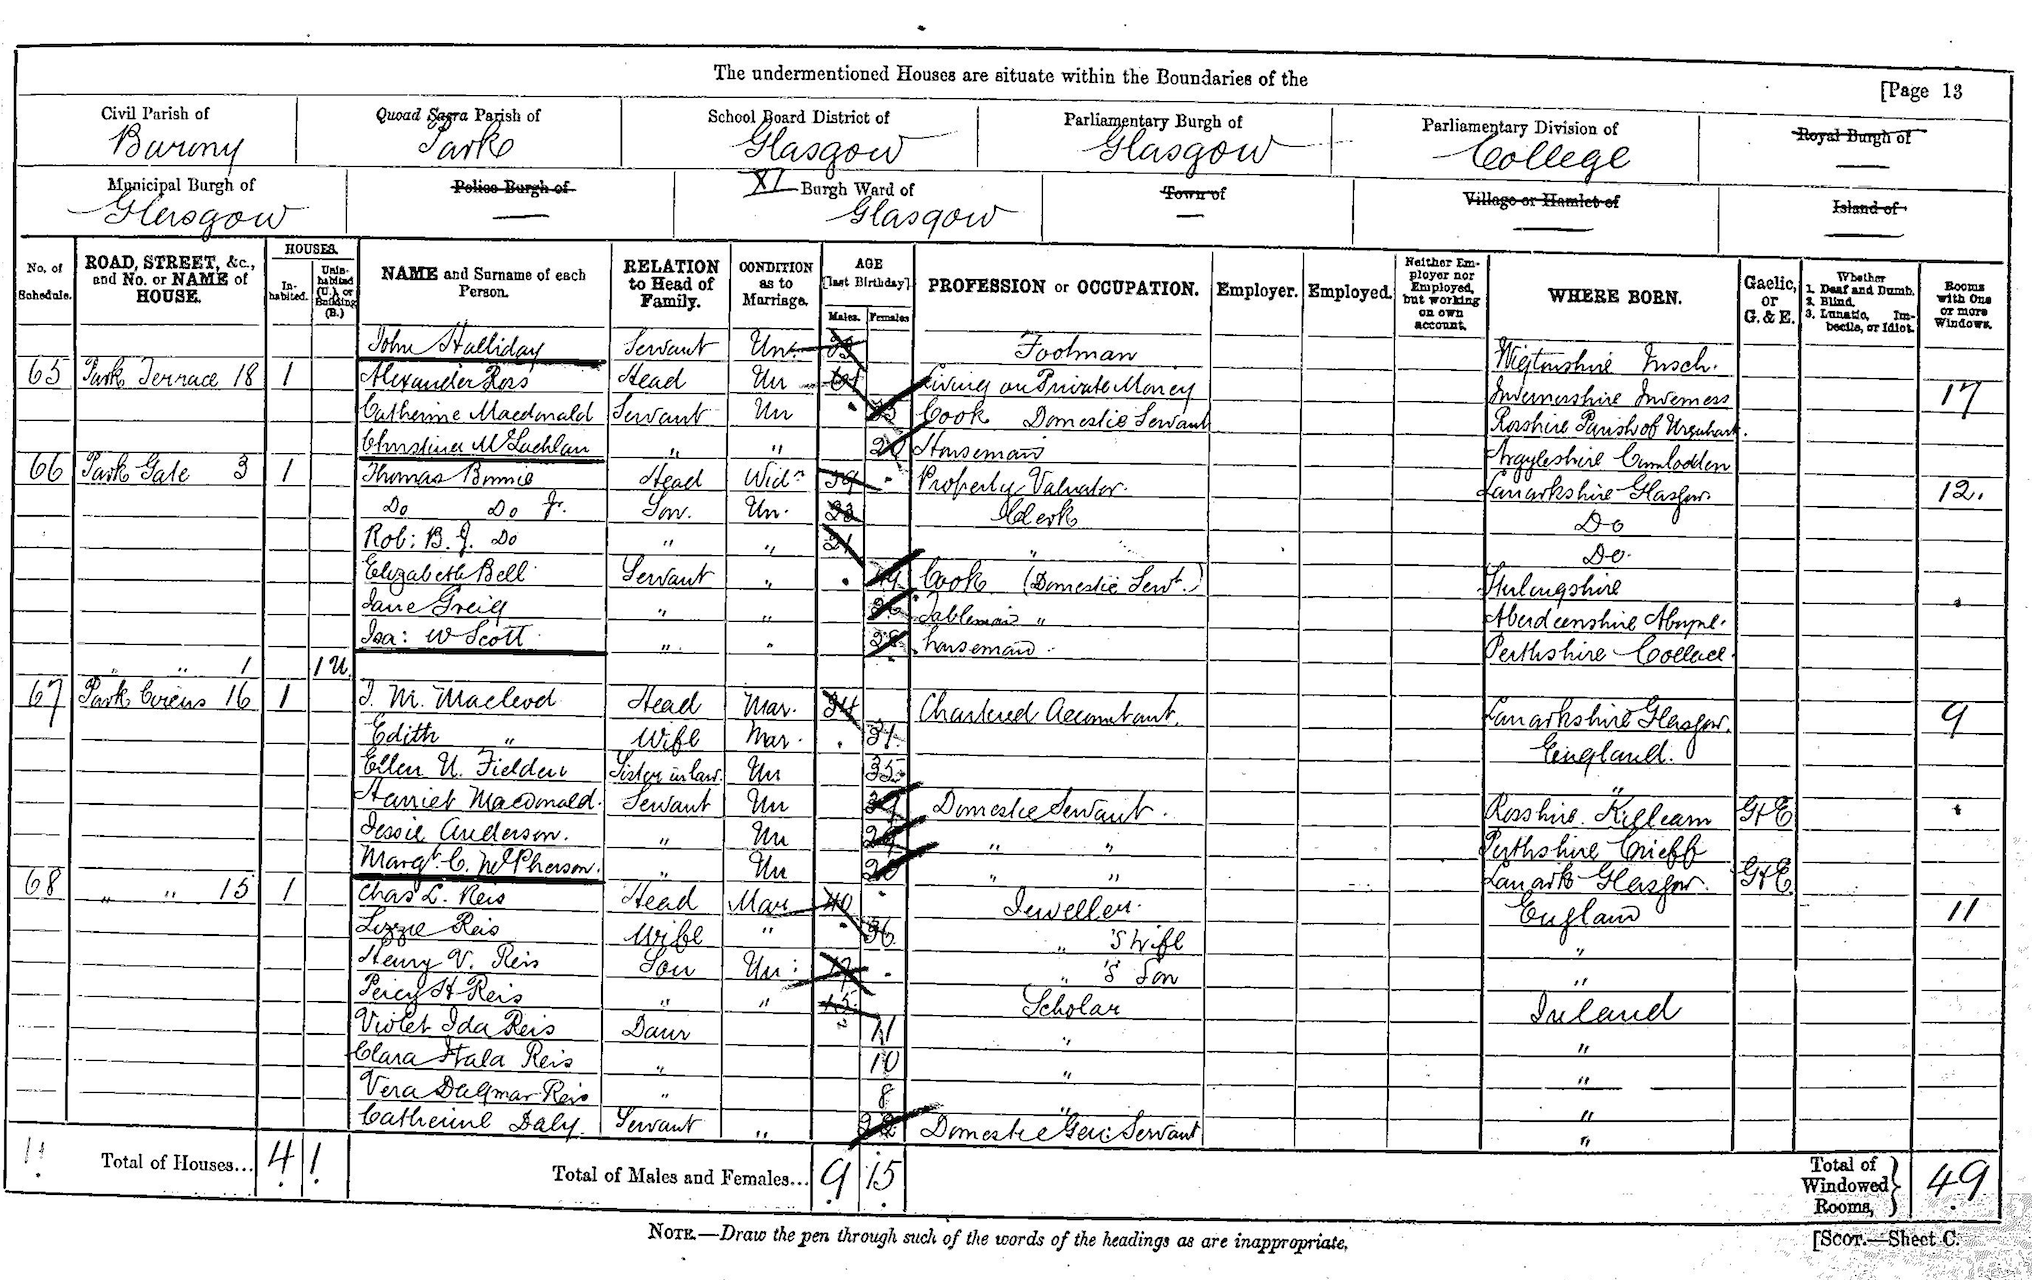 The undermentioned Houses are situate within the Boundaries of the
[Page 13
Civil Parish of Barony
Quoad Sacra Parish of Park
School Board District of Glasgow
Parliamentary Burgh of Glasgow
Parliamentary Division of College
Royal Burgh of —
Municipal Burgh of Glasgow
Police Burgh of —
XI Burgh Ward of Glasgow
Town of —
Village or Hamlet of —
Island of —
No. of Schedule. ROAD, STREET, &c., and No. or NAME of HOUSE. HOUSES. In-habited. Unin-habited (U.), or Building (B.) NAME and Surname of each Person. RELATION to Head of Family. CONDITION as to Marriage. AGE [last Birthday] Males. Females PROFESSION or OCCUPATION. Employer. Employed. Neither Em-ployer nor Employed, but working on own account. WHERE BORN. Gaelic, or G. & E. Whether 1. Deaf and Dumb. 2. Blind. 3. Lunatic, Im-becile, or Idiot. Rooms with One or more Windows.
John Halliday Servant Un. Footman Wigtonshire Insch.
65 Park Terrace 18 1 Alexander Ross Head Un Living on Private Money Invernesshire Inverness 17
Catherine Macdonald Servant Un Cook Domestic Servant Rosshire Parish of Urquhart.
Christina McLachlan " " Housemaid Argyleshire Cumlodden
66 Park Gate 3 1 Thomas Binnie Head Widr 59 Property Valuator. Lanarkshire Glasgow. 12.
Do Do Jr. Son. Un. 23 Clerk Do
Rob: B. J. Do " " 21 " Do.
Elizabeth Bell Servant " Cook (Domestic Servt.) Stirlingshire
Jane Greig " " 26 Tablemaid " Aberdeenshire Aboyne.
Isa: W Scott " " 28 housemaid. Perthshire Collace.
" " 1 1 U
67 Park Circus 16 1 J. M. Macleod Head Mar. 34 Chartered Accountant. Lanarkshire Glasgow. 9
Edith " Wife Mar. 31 England.
Ellen U. Fielden Sister in law Un 35 "
Harriet Macdonald. Servant Un Domestic Servant. Rosshire. Killearn G & E
Jessie Anderson. " Un " " Perthshire Crieff
Margt. C. McPherson. " Un 20 " " Lanark Glasgow. G & E.
68 " " 15 1 Chas L. Reis Head Mar 40 Jeweller. England 11
Lizzie Reis Wife " 36 " 's Wife "
Henry V. Reis Son Un: 17 " 's Son "
Percy H Reis " " 15 Scholar Ireland
Violet Ida Reis Daur 11 " "
Clara Itala Reis " 10 " "
Vera Dagmar Reis " 8 " "
Catherine Daly. Servant " 22 Domestic Gen: Servant "
Total of Houses... 4 1 Total of Males and Females... 9 15 Total of Windowed Rooms, 49
NOTE.—Draw the pen through such of the words of the headings as are inappropriate.
[SCOT.—Sheet C.